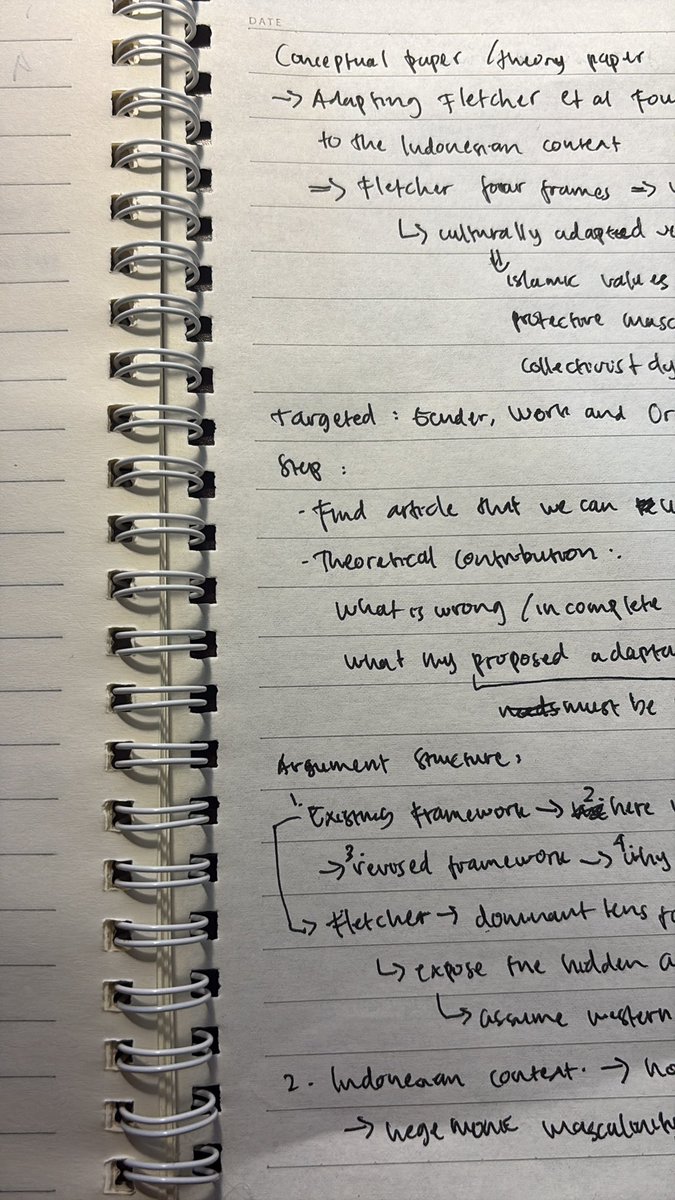 DATE
Conceptual paper / theory paper
→ Adapting Fletcher et al Fou
to the Indonesian content
⇒ Fletcher four frames ⇒
↳ culturally adapted
islamic values
protective masc
collectivist dy
Targeted : Gender, Work and Or
Step :
- Find article that we can
- Theoretical contribution :.
What is wrong / incomplete
what my proposed adapta
must be
Argument Structure :
1. Existing framework → 2. here
→ 3 revised framework → 4 why
↳ Fletcher → dominant lens fo
↳ expose the hidden a
↳ assume western
2. Indonesian content. → ho
→ hegemonic masculinity